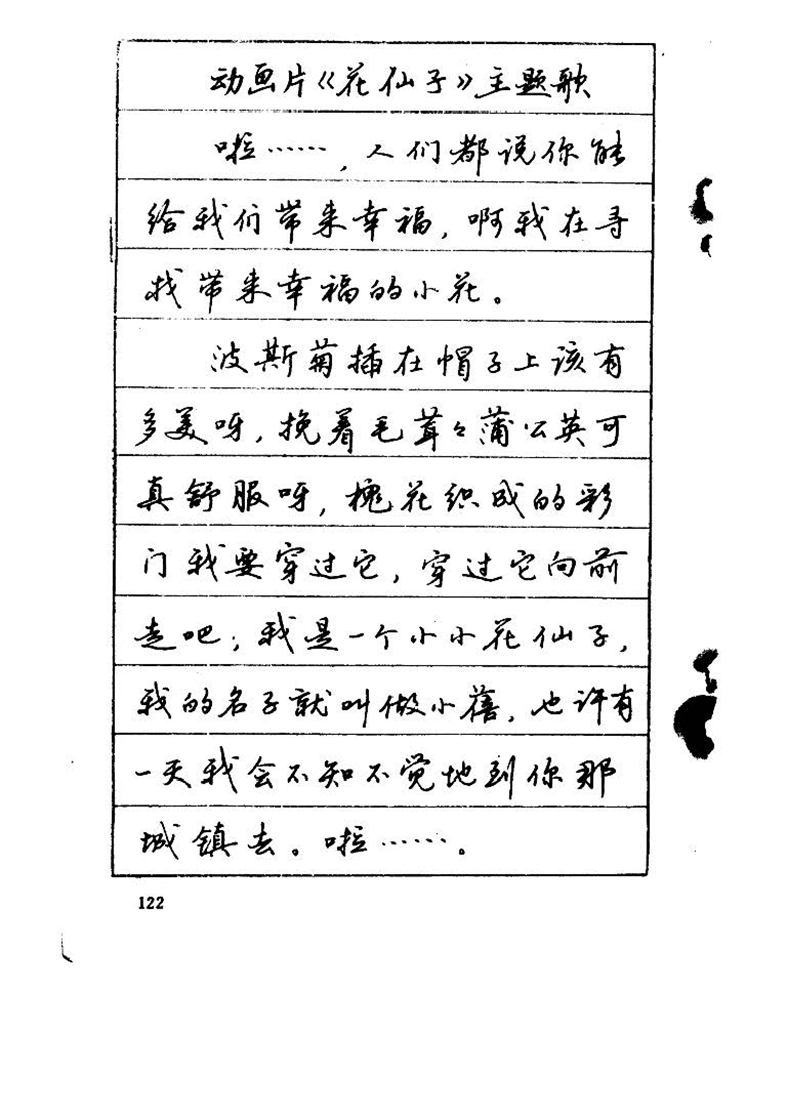 动画片《花仙子》主题歌
啦……，人们都说你能
给我们带来幸福，啊我在寻
找带来幸福的小花。
波斯菊插在帽子上该有
多美呀，挽着毛茸々蒲公英可
真舒服呀，槐花织成的彩
门我要穿过它，穿过它向前
走吧；我是一个小小花仙子，
我的名子就叫做小蓓，也许有
一天我会不知不觉地到你那
城镇去。啦……。
122